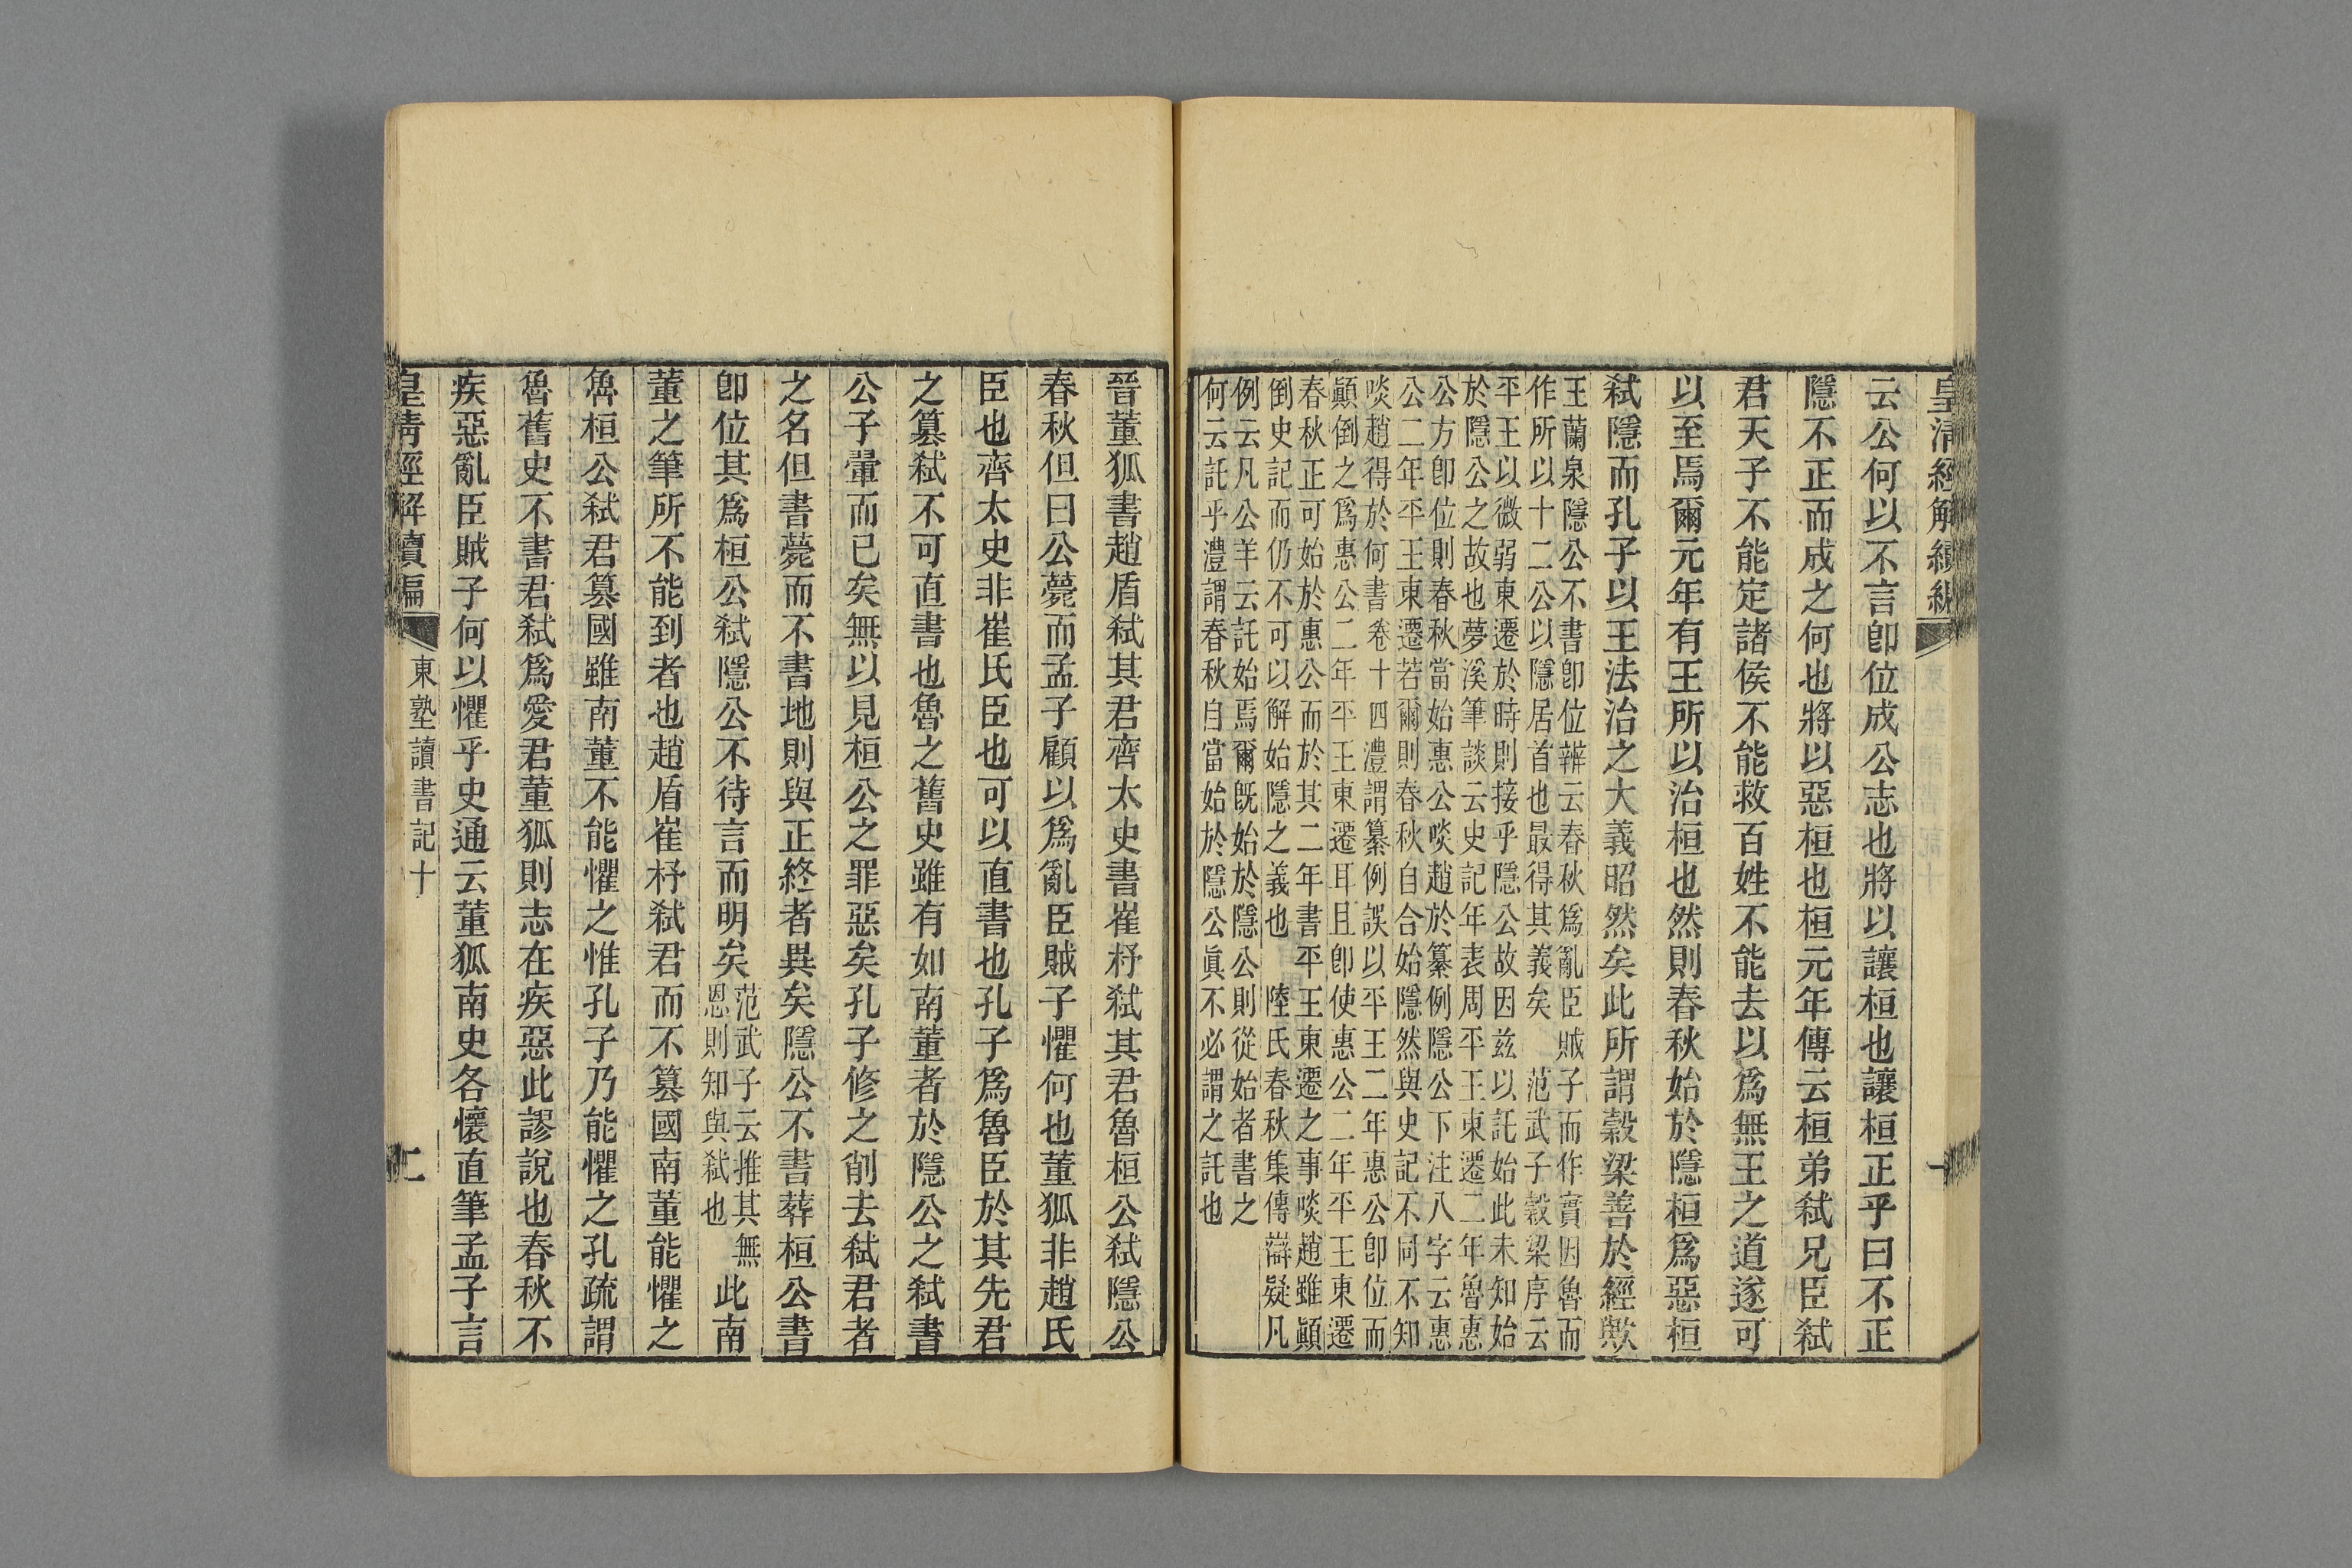 皇清經解續編
云公何以不言卽位成公志也將以讓桓也讓桓正乎曰不正
隱不正而成之何也將以惡桓也桓元年傳云桓弟弒兄臣弒
君天子不能定諸侯不能救百姓不能去以爲無王之道遂可
以至焉爾元年有王所以治桓也然則春秋始於隱桓爲惡桓
弒隱而孔子以王法治之大義昭然矣此所謂穀梁善於經歟
王蘭泉隱公不書卽位辯云春秋爲亂臣賊子而作實因魯而
作所以十二公以隱居首也最得其義矣 范武子穀梁序云
平王以微弱東遷於時則接乎隱公故因兹以託始此未知始
於隱公之故也夢溪筆談云史記年表周平王東遷二年魯惠
公方卽位則春秋當始惠公啖趙於纂例隱公下注八字云惠
公二年平王東遷若爾則春秋自合始隱然與史記不同不知
啖趙得於何書卷十四澧謂纂例誤以平王二年惠公卽位而
顚倒之爲惠公二年平王東遷耳且卽使惠公二年平王東遷
春秋正可始於惠公而於其二年書平王東遷之事啖趙雖顚
倒史記而仍不可以解始隱之義也 陸氏春秋集傳辯疑凡
例云凡公羊云託始焉爾旣始於隱公則從始者書之
何云託乎澧謂春秋自當始於隱公眞不必謂之託也
晉董狐書趙盾弒其君齊太史書崔杼弒其君魯桓公弒隱公
春秋但曰公薨而孟子顧以爲亂臣賊子懼何也董狐非趙氏
臣也齊太史非崔氏臣也可以直書也孔子爲魯臣於其先君
之篡弒不可直書也魯之舊史雖有如南董者於隱公之弒書
公子翬而已矣無以見桓公之罪惡矣孔子修之削去弒君者
之名但書薨而不書地則與正終者異矣隱公不書葬桓公書
卽位其爲桓公弒隱公不待言而明矣范武子云推其無恩則知與弒也此南
董之筆所不能到者也趙盾崔杼弒君而不篡國南董能懼之
魯桓公弒君篡國雖南董不能懼之惟孔子乃能懼之孔疏謂
魯舊史不書君弒爲愛君董狐則志在疾惡此謬說也春秋不
疾惡亂臣賊子何以懼乎史通云董狐南史各懷直筆孟子言
皇清經解續編 東塾讀書記十 二